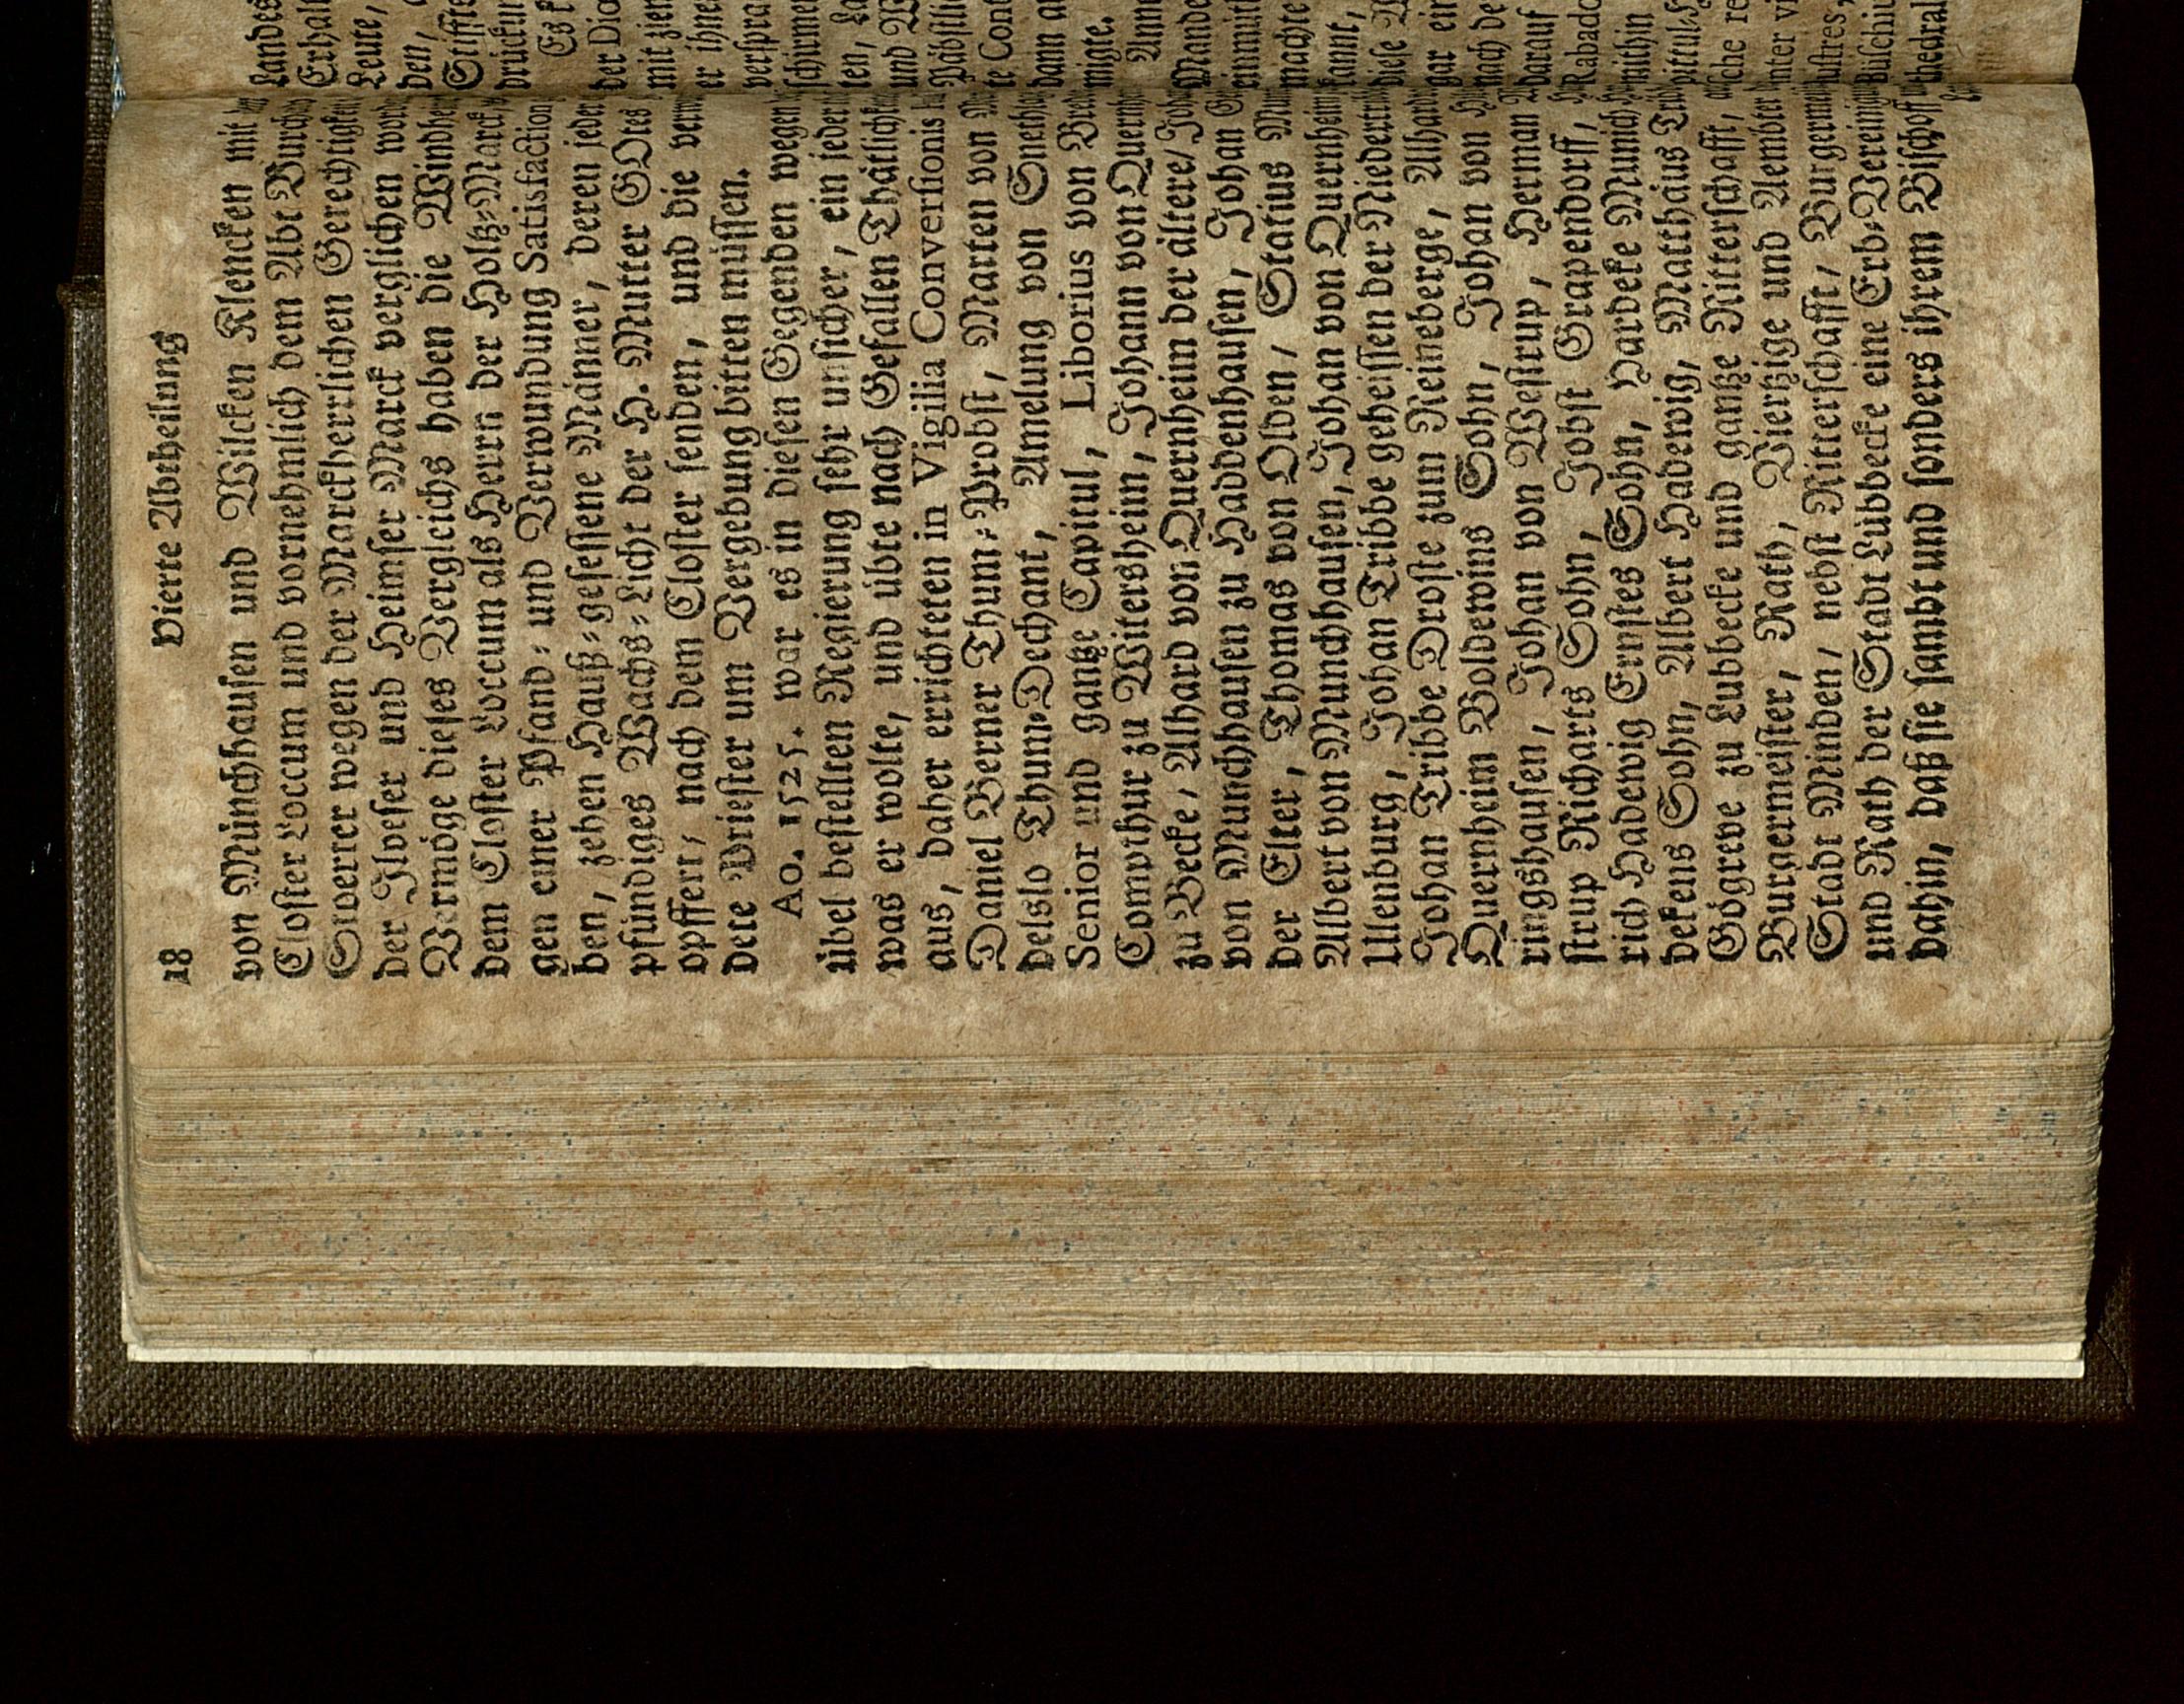 18 Vierte Abtheilung
von Münchhausen und Wilcken Klencken mit
Closter Loccum und vornehmlich dem Abt Burch
Stoerer wegen der Marckherrlichen Gerechtigkei
der Ilveser und Heimser Marck verglichen word
Vermöge dieses Vergleichs haben die Windhe
dem Closter Loccum als Herrn der Holtz-Marck
gen einer Pfand- und Verwundung Satisfaction
ben, zehen Hauß-gesessene Männer, deren jeder
pfündiges Wachs-Licht der H. Mutter GOtes
opffert, nach dem Closter senden, und die verw
dete Priester um Vergebung bitten müssen.
Ao. 1525. war es in diesen Gegenden wegen
übel bestellten Regierung sehr unsicher, ein jeder
was er wolte, und übte nach Gefallen Thätlichk
aus, daher errichteten in Vigilia Conversionis
Daniel Berner Thum-Probst, Marten von
delslo Thum-Dechant, Amelung von Sneth
Senior und gantze Capitul, Liborius von Bre
Compthur zu Witersheim, Johann von Quernh
zu Becke, Alhard von Quernheim der ältere, Joh
von Munchhausen zu Haddenhausen, Johan
der Elter, Thomas von Olden, Statius Mun
Albert von Munchhausen, Johan von Quernheim
Ullenburg, Johan Tribbe geheissen der Niedertri
Johan Tribbe Droste zum Reineberge, Alhard
Quernheim Boldewins Sohn, Johan von
ringshausen, Johan von Westrup, Herman
strup Richarts Sohn, Jobst Grapendorff,
rich Hadewig Ernstes Sohn, Hardeke Munich
dekens Sohn, Albert Hadewig, Matthäus Tri
Gögreve zu Lubbecke und gantze Ritterschafft,
Burgermeister, Rath, Viertzige und Aembter
Stadt Minden, nebst Ritterschafft, Burgerme
und Rath der Stadt Lübbecke eine Erb-Vereinig
dahin, daß sie sambt und sonders ihrem Bischoff
Landes
Erhal
Leute,
den,
Stiffte
drückun
Es k
der Dio
mit zien
er ihne
verspra
schrume
ten, La
und W
Päbstlic
te Cont
dann a
migte.
Anno
Mande
einmüth
machte
kannt,
diese
gar ein
nach de
Darauf
Rabado
mithin
pittul-
sche re
nter vi
lustres,
Büschiu
thedral